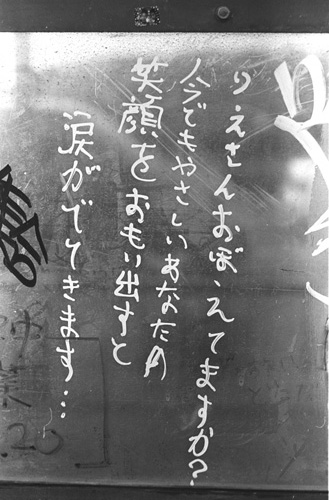 りえさんおぼえてますか?
今でもやさしいあなたの
笑顔をおもい出すと
涙がでてきます…